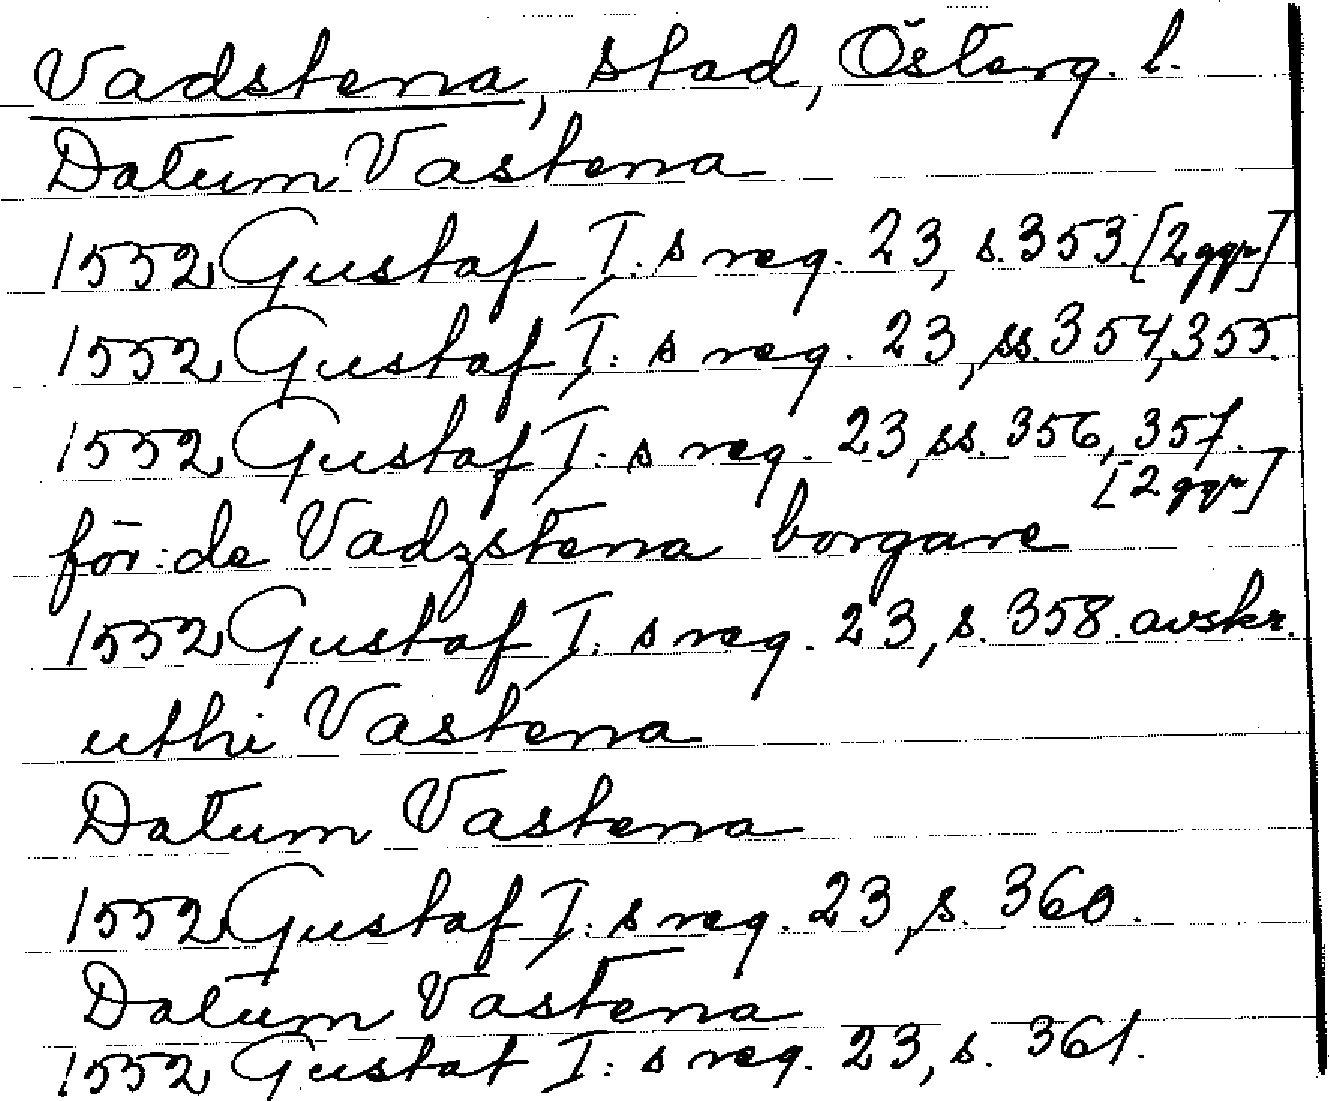 Vadstena, stad, Österg. l.
Datum Vastena
1552 Gustaf I:s reg. 23, s. 353. [2 ggr]
1552 Gustaf I:s reg. 23, ss. 354, 355.
1552 Gustaf I:s reg. 23, ss. 356, 357.
[2 ggr]
för: de Vadzstena borgare
1552 Gustaf I:s reg. 23, s. 358. avskr.
uthi Vastena
Datum Vastena
1552 Gustaf I:s reg. 23, s. 360.
Datum Vastena
1552 Gustaf I:s reg. 23, s. 361.